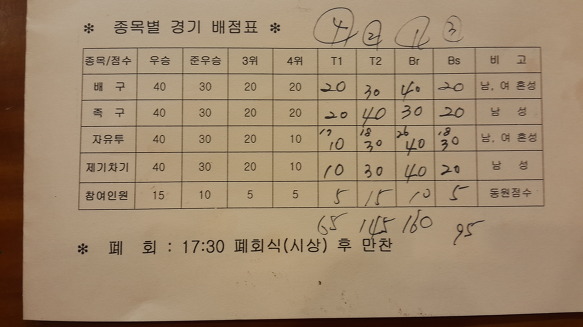 4 2 1 3
✻ 종목별 경기 배점표 ✻
종목/점수 우승 준우승 3위 4위 T1 T2 Br Bs 비 고
배 구 40 30 20 20 20 30 40 20 남, 여 혼성
족 구 40 30 20 20 20 40 30 20 남 성
17 18 26 18
자유투 40 30 20 10 10 30 40 30 남, 여 혼성
제기차기 40 30 20 10 10 30 40 20 남 성
참여인원 15 10 5 5 5 15 10 5 동원점수
65 145 160 95
✻ 폐 회 : 17:30 폐회식(시상) 후 만찬